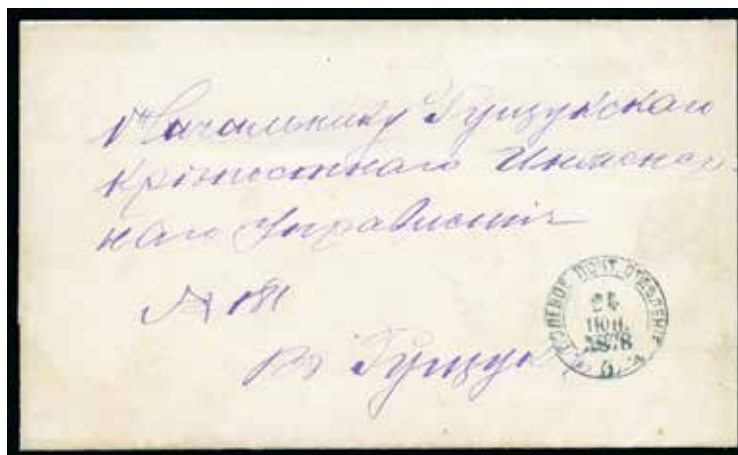 Г. Начальнику Рущукскаго
крѣпостнаго Инженер-
наго Управленія
№ 181
въ Рущукъ
ПОЛЕВОЕ ПОЧТ. ОТДѢЛЕНІЕ
ІЮН.
1878